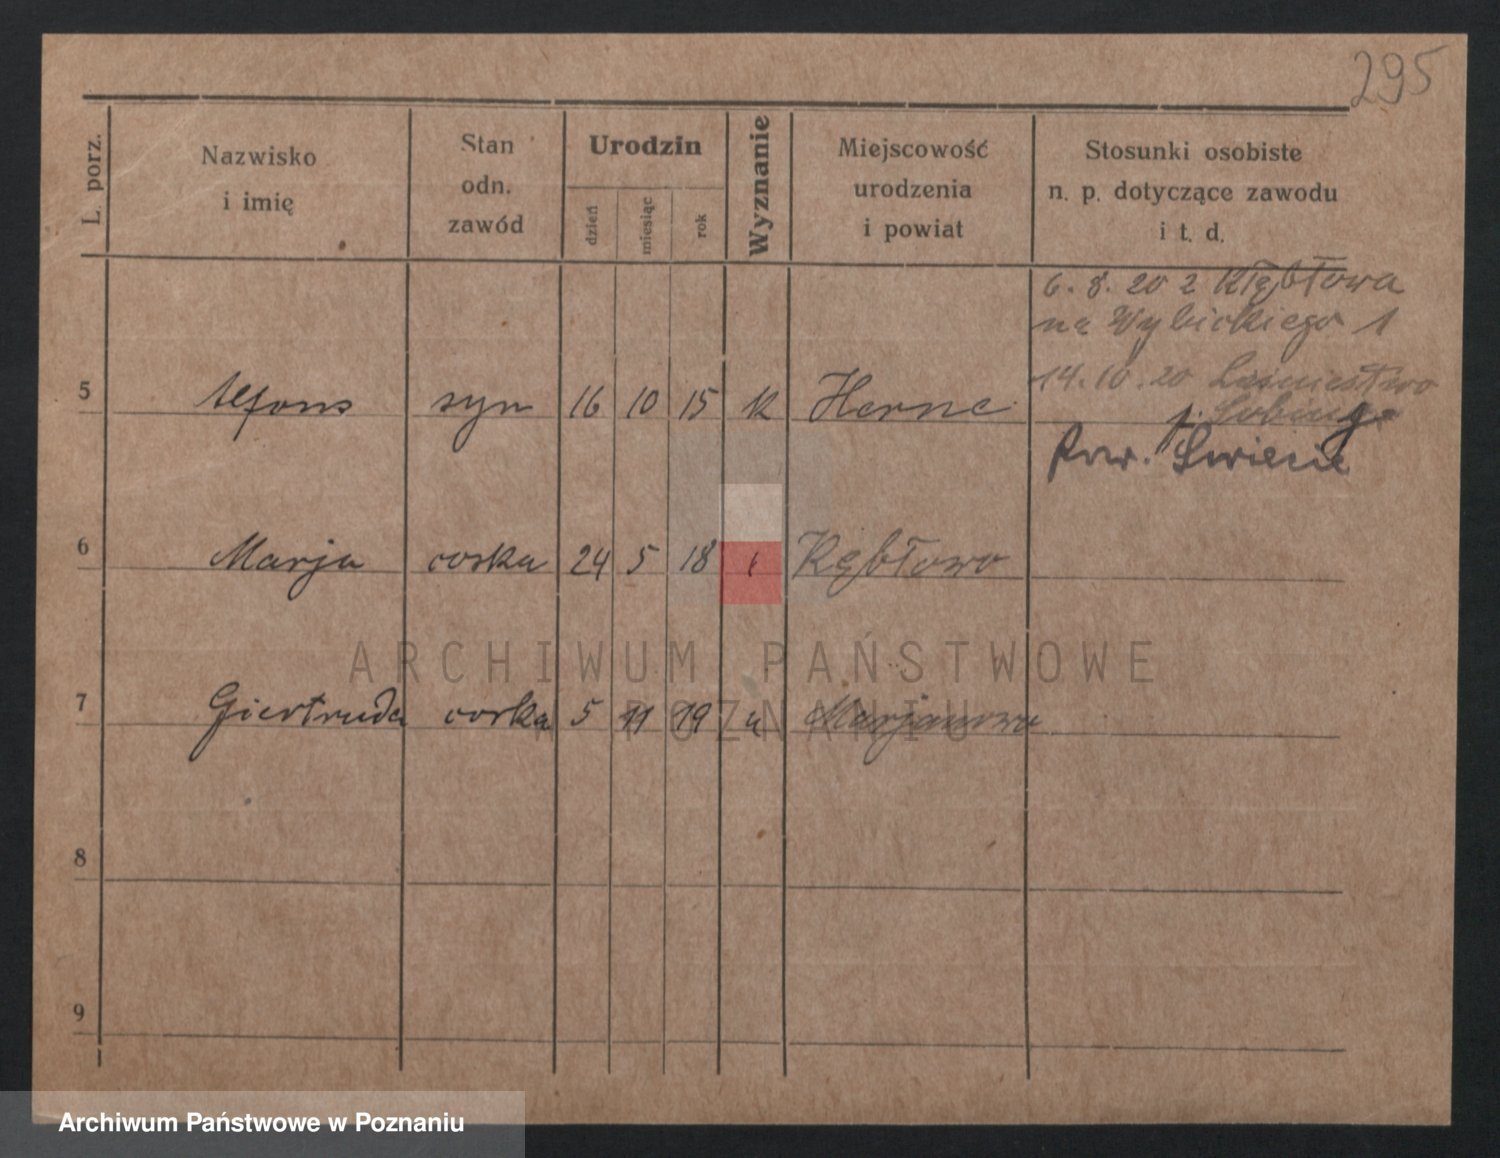 295
L. porz.
Nazwisko
i imię
Stan
odn.
zawód
Urodzin
dzień
miesiąc
rok
Wyznanie
Miejscowość
urodzenia
i powiat
Stosunki osobiste
n. p. dotyczące zawodu
i t. d.
6. 8. 20 z Kłębłowa
na Wybickiego 1
14. 10. 20 Leśnictwo
5 Alfons syn 16 10 15 k Herne
p.
Pow. Świecie
6 Marja corka 24 5 18 Kębłowo
ARCHIWUM PAŃSTWOWE
7 Giertruda corka 5 11 19 Marjanowo
W POZNANIU
8
9
Archiwum Państwowe w Poznaniu